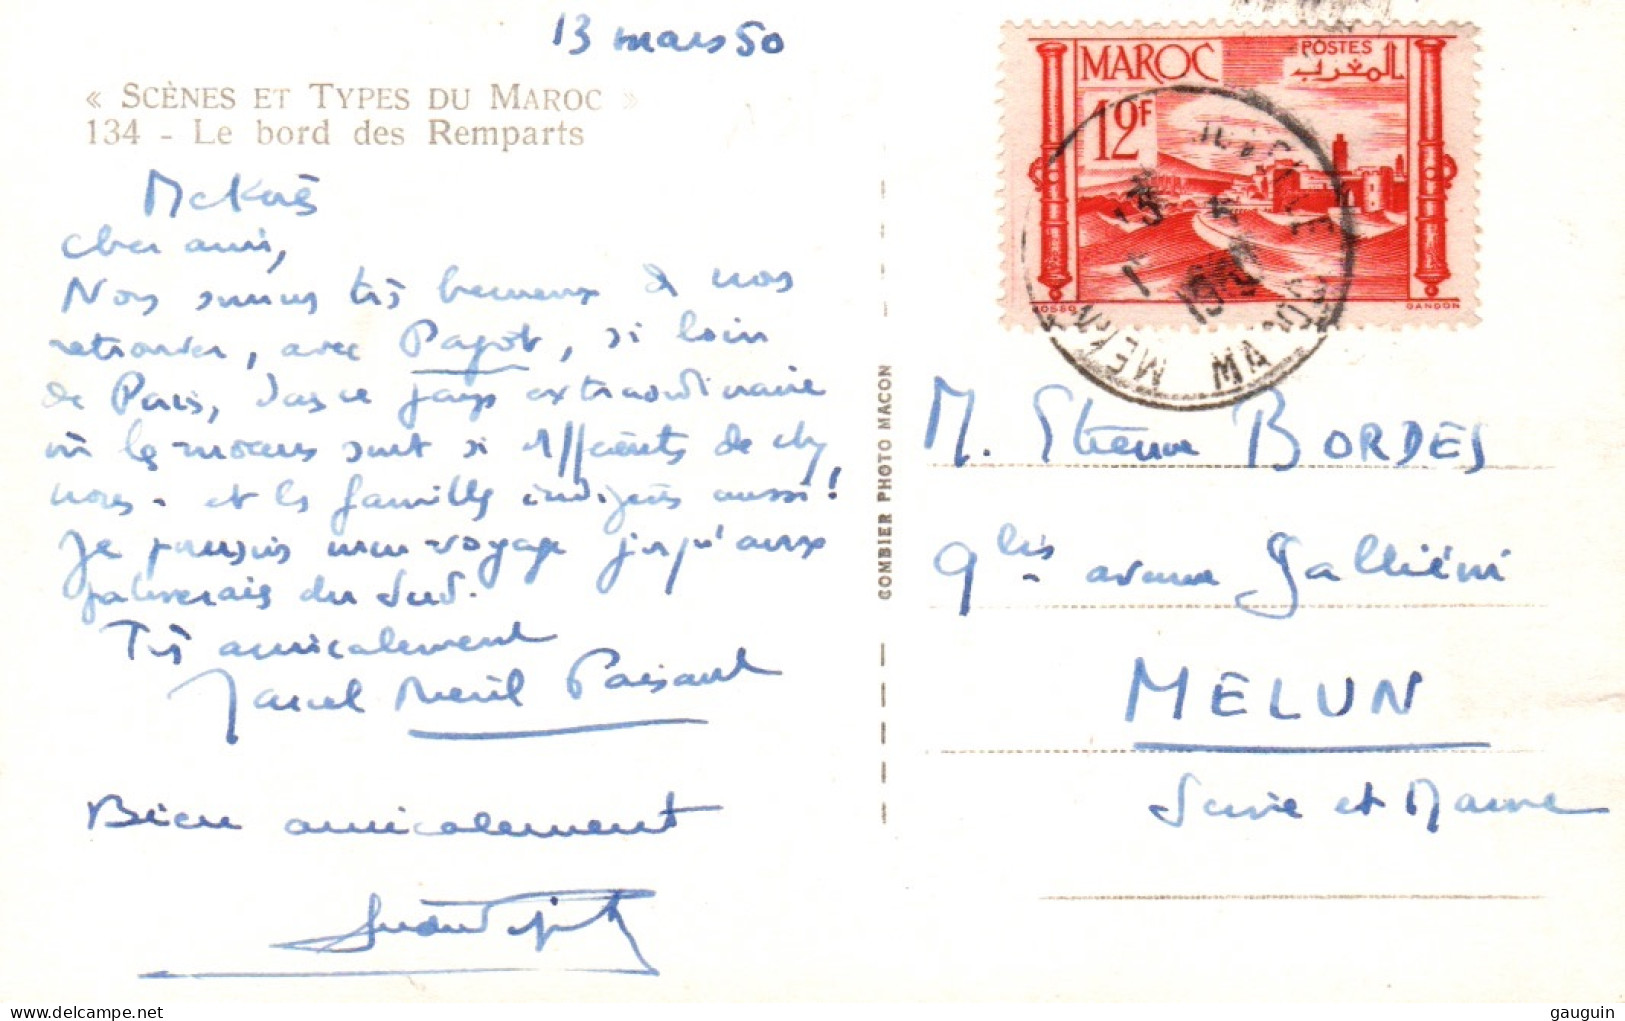 13 mars 50
« SCÈNES ET TYPES DU MAROC »
134 - Le bord des Remparts
Meknès
Cher ami,
Nous sommes très heureux de nous
retrouver, avec Payot, si loin
de Paris, dans ce pays extraordinaire
où les moeurs sont si différents de chez
nous - et les familles indigènes aussi!
Je poursuis mon voyage jusqu'aux
palmeraies du Sud.
Très amicalement
Marcel Paisant
Bien amicalement
COMBIER PHOTO MACON
MAROC
POSTES
المغرب
12F
GANDON
MEKNES
M. Etienne BORDES
9 bis avenue Galliéni
MELUN
Seine et Marne
delcampe.net
gauguin